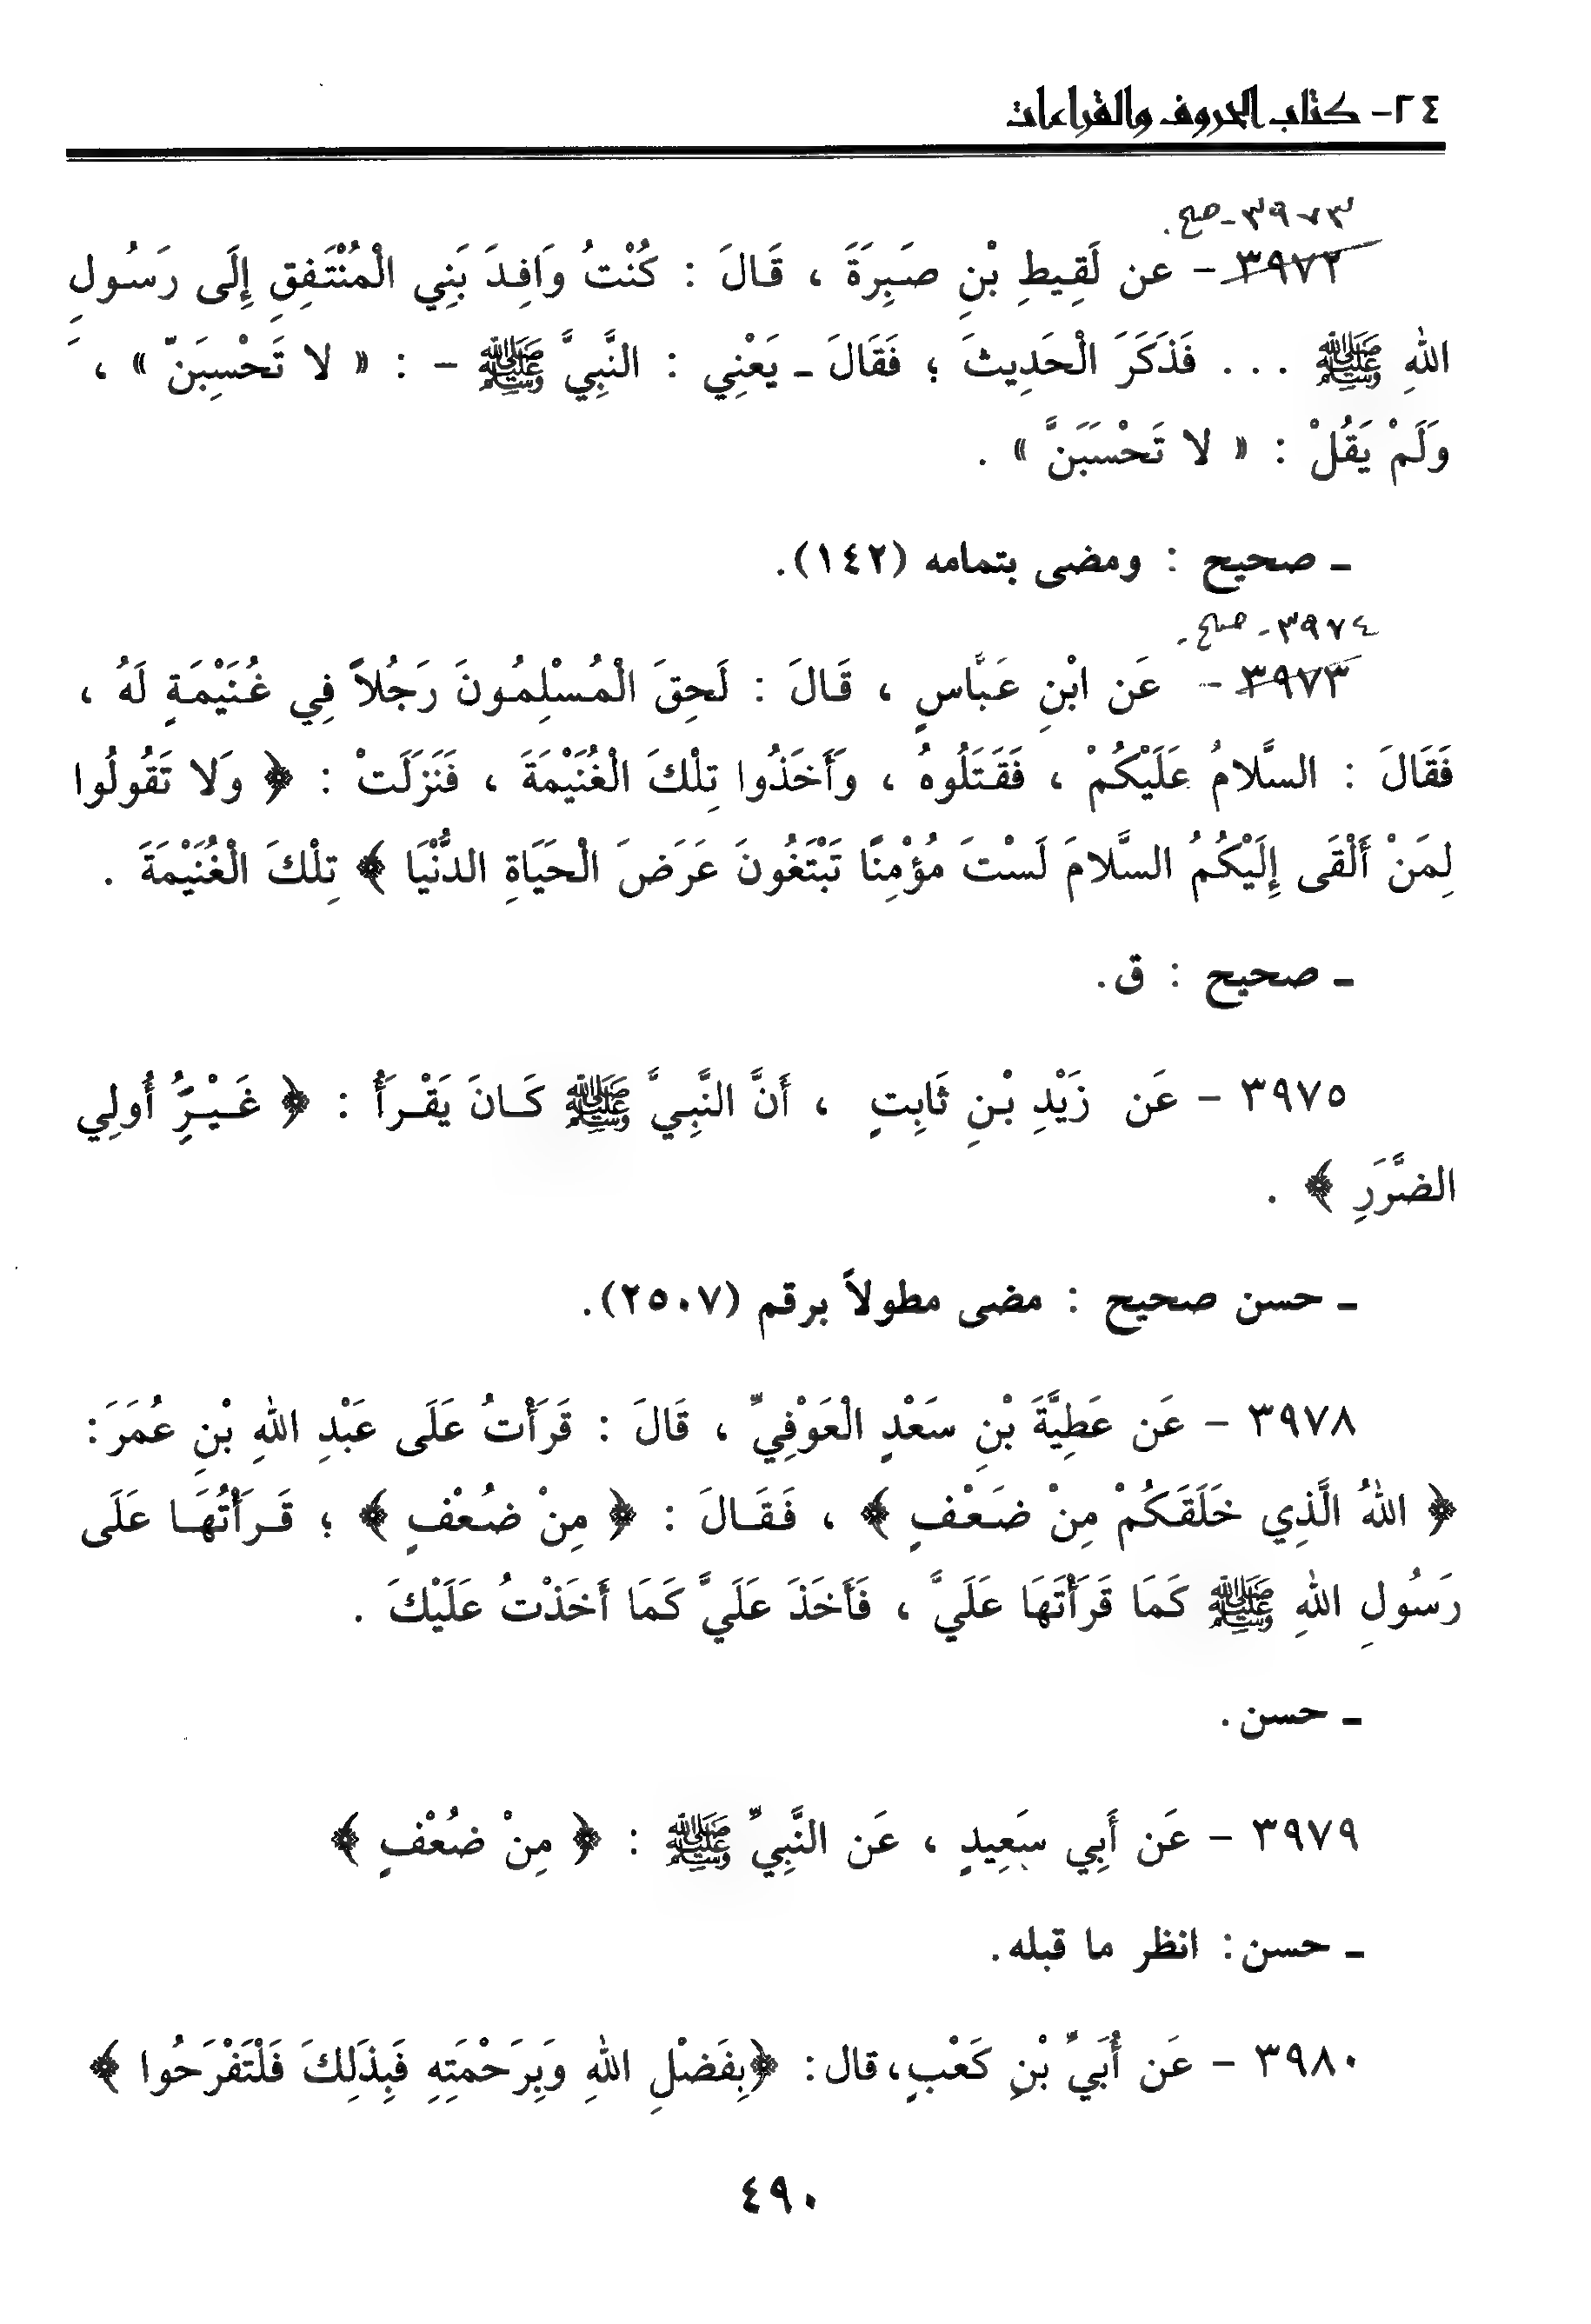 ٢٤- كتاب الحروف والقراءات
٣٩٧٣- صح.
٣٩٧٢ - عن لَقِيطِ بْنِ صَبِرَةَ ، قَالَ : كُنْتُ وَافِدَ بَنِي الْمُنْتَفِقِ إِلَى رَسُولِ
اللهِ ﷺ . . . فَذَكَرَ الْحَدِيثَ ؛ فَقَالَ ـ يَعْنِي : النَّبِيَّ ﷺ - : « لا تَحْسِبَنَّ » ،
وَلَمْ يَقُلْ : « لا تَحْسَبَنَّ » .
ـ صحيح : ومضى بتمامه (١٤٢).
٣٩٧٤- صح.
٣٩٧٣ - عَن ابْنِ عَبَّاسٍ ، قَالَ : لَحِقَ الْمُسْلِمُونَ رَجُلاً فِي غُنَيْمَةٍ لَهُ ،
فَقَالَ : السَّلامُ عَلَيْكُمْ ، فَقَتَلُوهُ ، وَأَخَذُوا تِلْكَ الْغُنَيْمَةَ ، فَنَزَلَتْ : ﴿ وَلا تَقُولُوا
لِمَنْ أَلْقَى إِلَيْكُمُ السَّلامَ لَسْتَ مُؤْمِنًا تَبْتَغُونَ عَرَضَ الْحَيَاةِ الدُّنْيَا ﴾ تِلْكَ الْغُنَيْمَةَ .
ـ صحيح : ق.
٣٩٧٥ - عَن زَيْدِ بْنِ ثَابِتٍ ، أَنَّ النَّبِيَّ ﷺ كَانَ يَقْرَأُ : ﴿ غَيْرُِ أُولِي
الضَّرَرِ ﴾ .
ـ حسن صحيح : مضى مطولاً برقم (٢٥٠٧).
٣٩٧٨ - عَن عَطِيَّةَ بْنِ سَعْدٍ الْعَوْفِيِّ ، قَالَ : قَرَأْتُ عَلَى عَبْدِ اللهِ بْنِ عُمَرَ :
﴿ اللهُ الَّذِي خَلَقَكُمْ مِنْ ضَعْفٍ ﴾ ، فَقَالَ : ﴿ مِنْ ضُعْفٍ ﴾ ؛ قَرَأْتُهَا عَلَى
رَسُولِ اللهِ ﷺ كَمَا قَرَأْتَهَا عَلَيَّ ، فَأَخَذَ عَلَيَّ كَمَا أَخَذْتُ عَلَيْكَ .
ـ حسن.
٣٩٧٩ - عَن أَبِي سَعِيدٍ ، عَن النَّبِيِّ ﷺ : ﴿ مِنْ ضُعْفٍ ﴾
ـ حسن: انظر ما قبله.
٣٩٨٠ - عَن أُبَيِّ بْنِ كَعْبٍ، قال: ﴿بِفَضْلِ اللهِ وَبِرَحْمَتِهِ فَبِذَلِكَ فَلْتَفْرَحُوا ﴾
٤٩٠